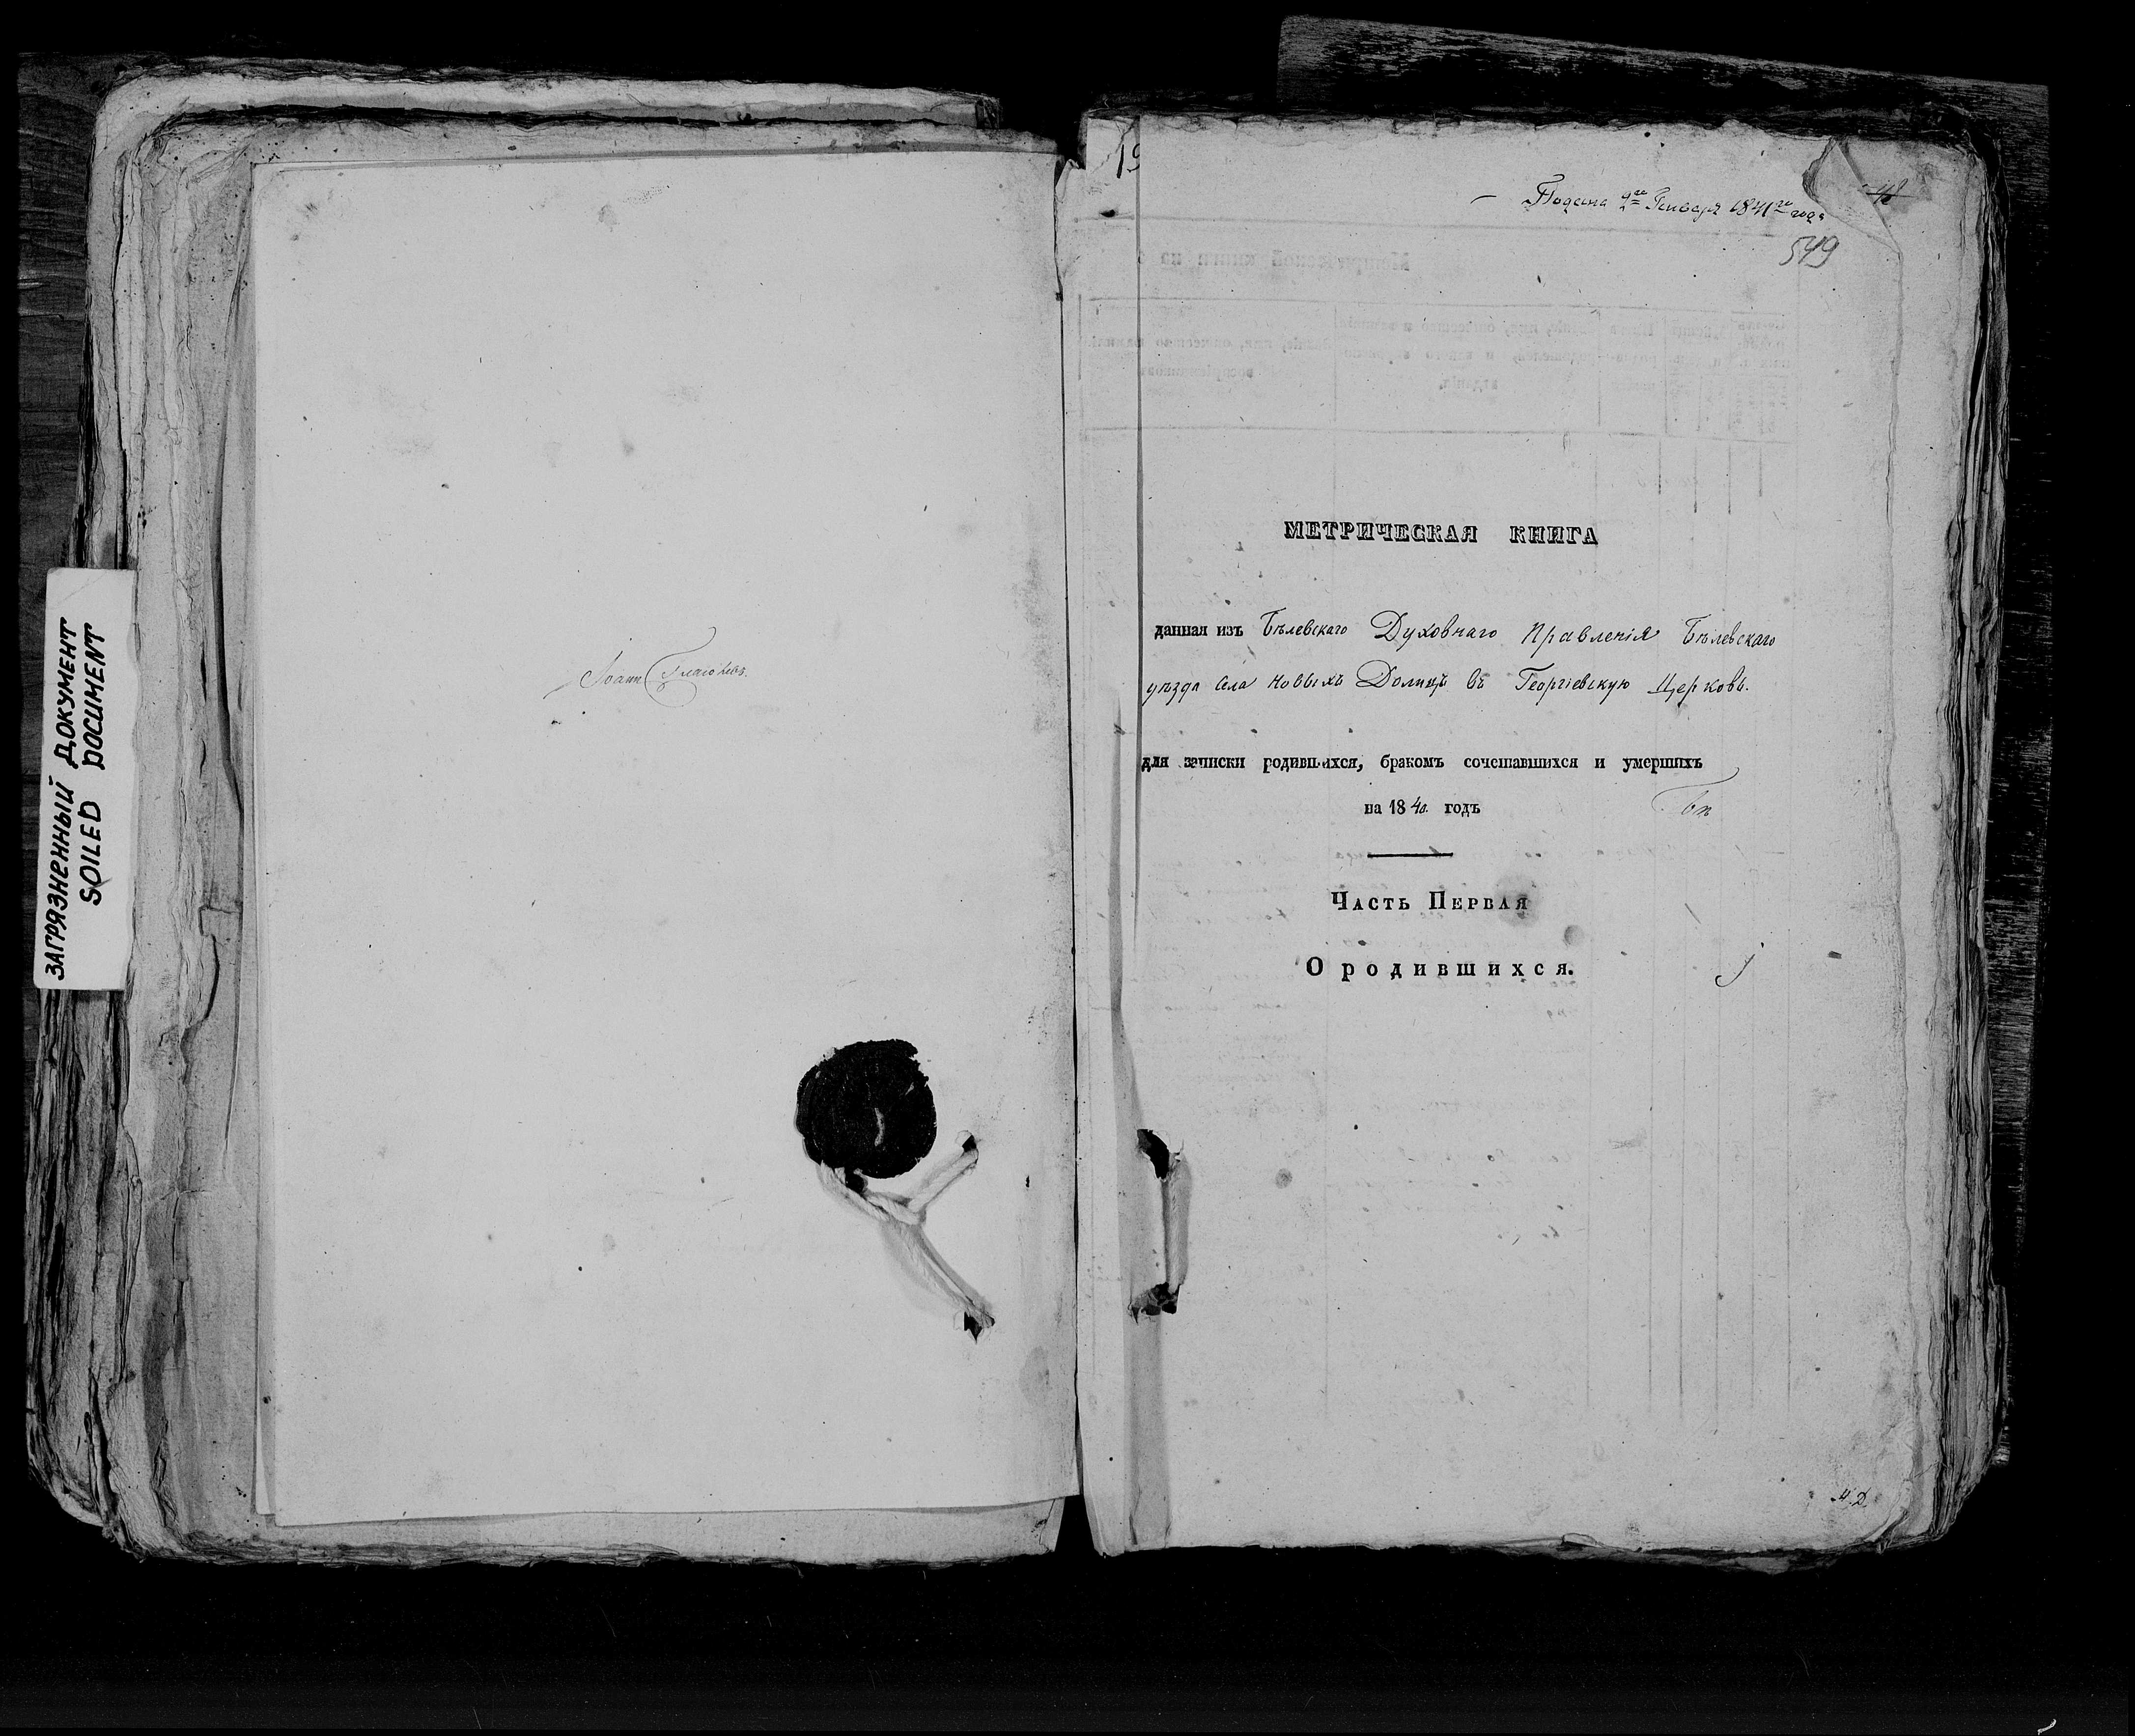 ЗАГРЯЗНЕННЫЙ ДОКУМЕНТ
SOILED DOCUMENT
Іоанн
19
Подана 9го Генваря 1841го года
549
МЕТРИЧЕСКАЯ КНИГА
данная изъ Бѣлевскаго Духовнаго Правленія Бѣлевскаго
уѣзда Села Новыхъ Долецъ въ Георгіевскую Церковь.
для записки родившихся, бракомъ сочетавшихся и умершихъ
на 1840. годъ
Бѣ
Часть Первая
О родившихся.